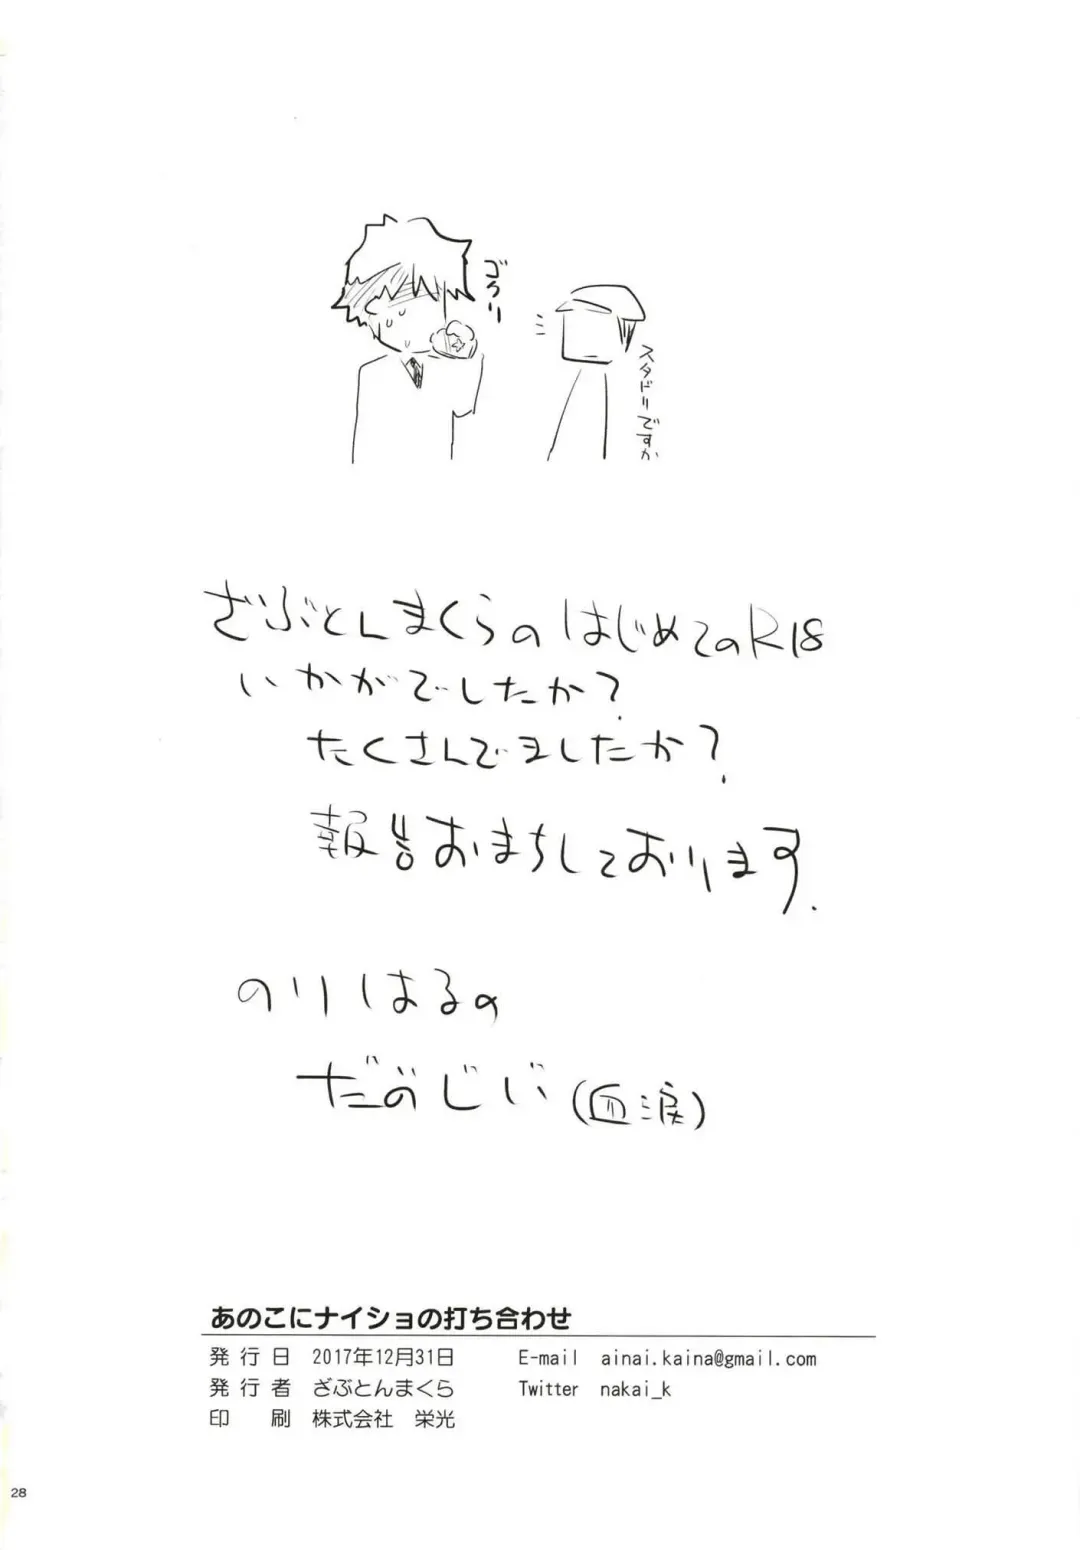 ゴクリ
スタドリですか
ざぶとんまくらのはじめてのR18
いかがでしたか?
たくさんでましたか?
報告おまちしております.
のりはるの
だのじい(血涙)
あのこにナイショの打ち合わせ
発行日 2017年12月31日 E-mail ainai.kaina@gmail.com
発行者 ざぶとんまくら Twitter nakai_k
印刷 株式会社 栄光
28